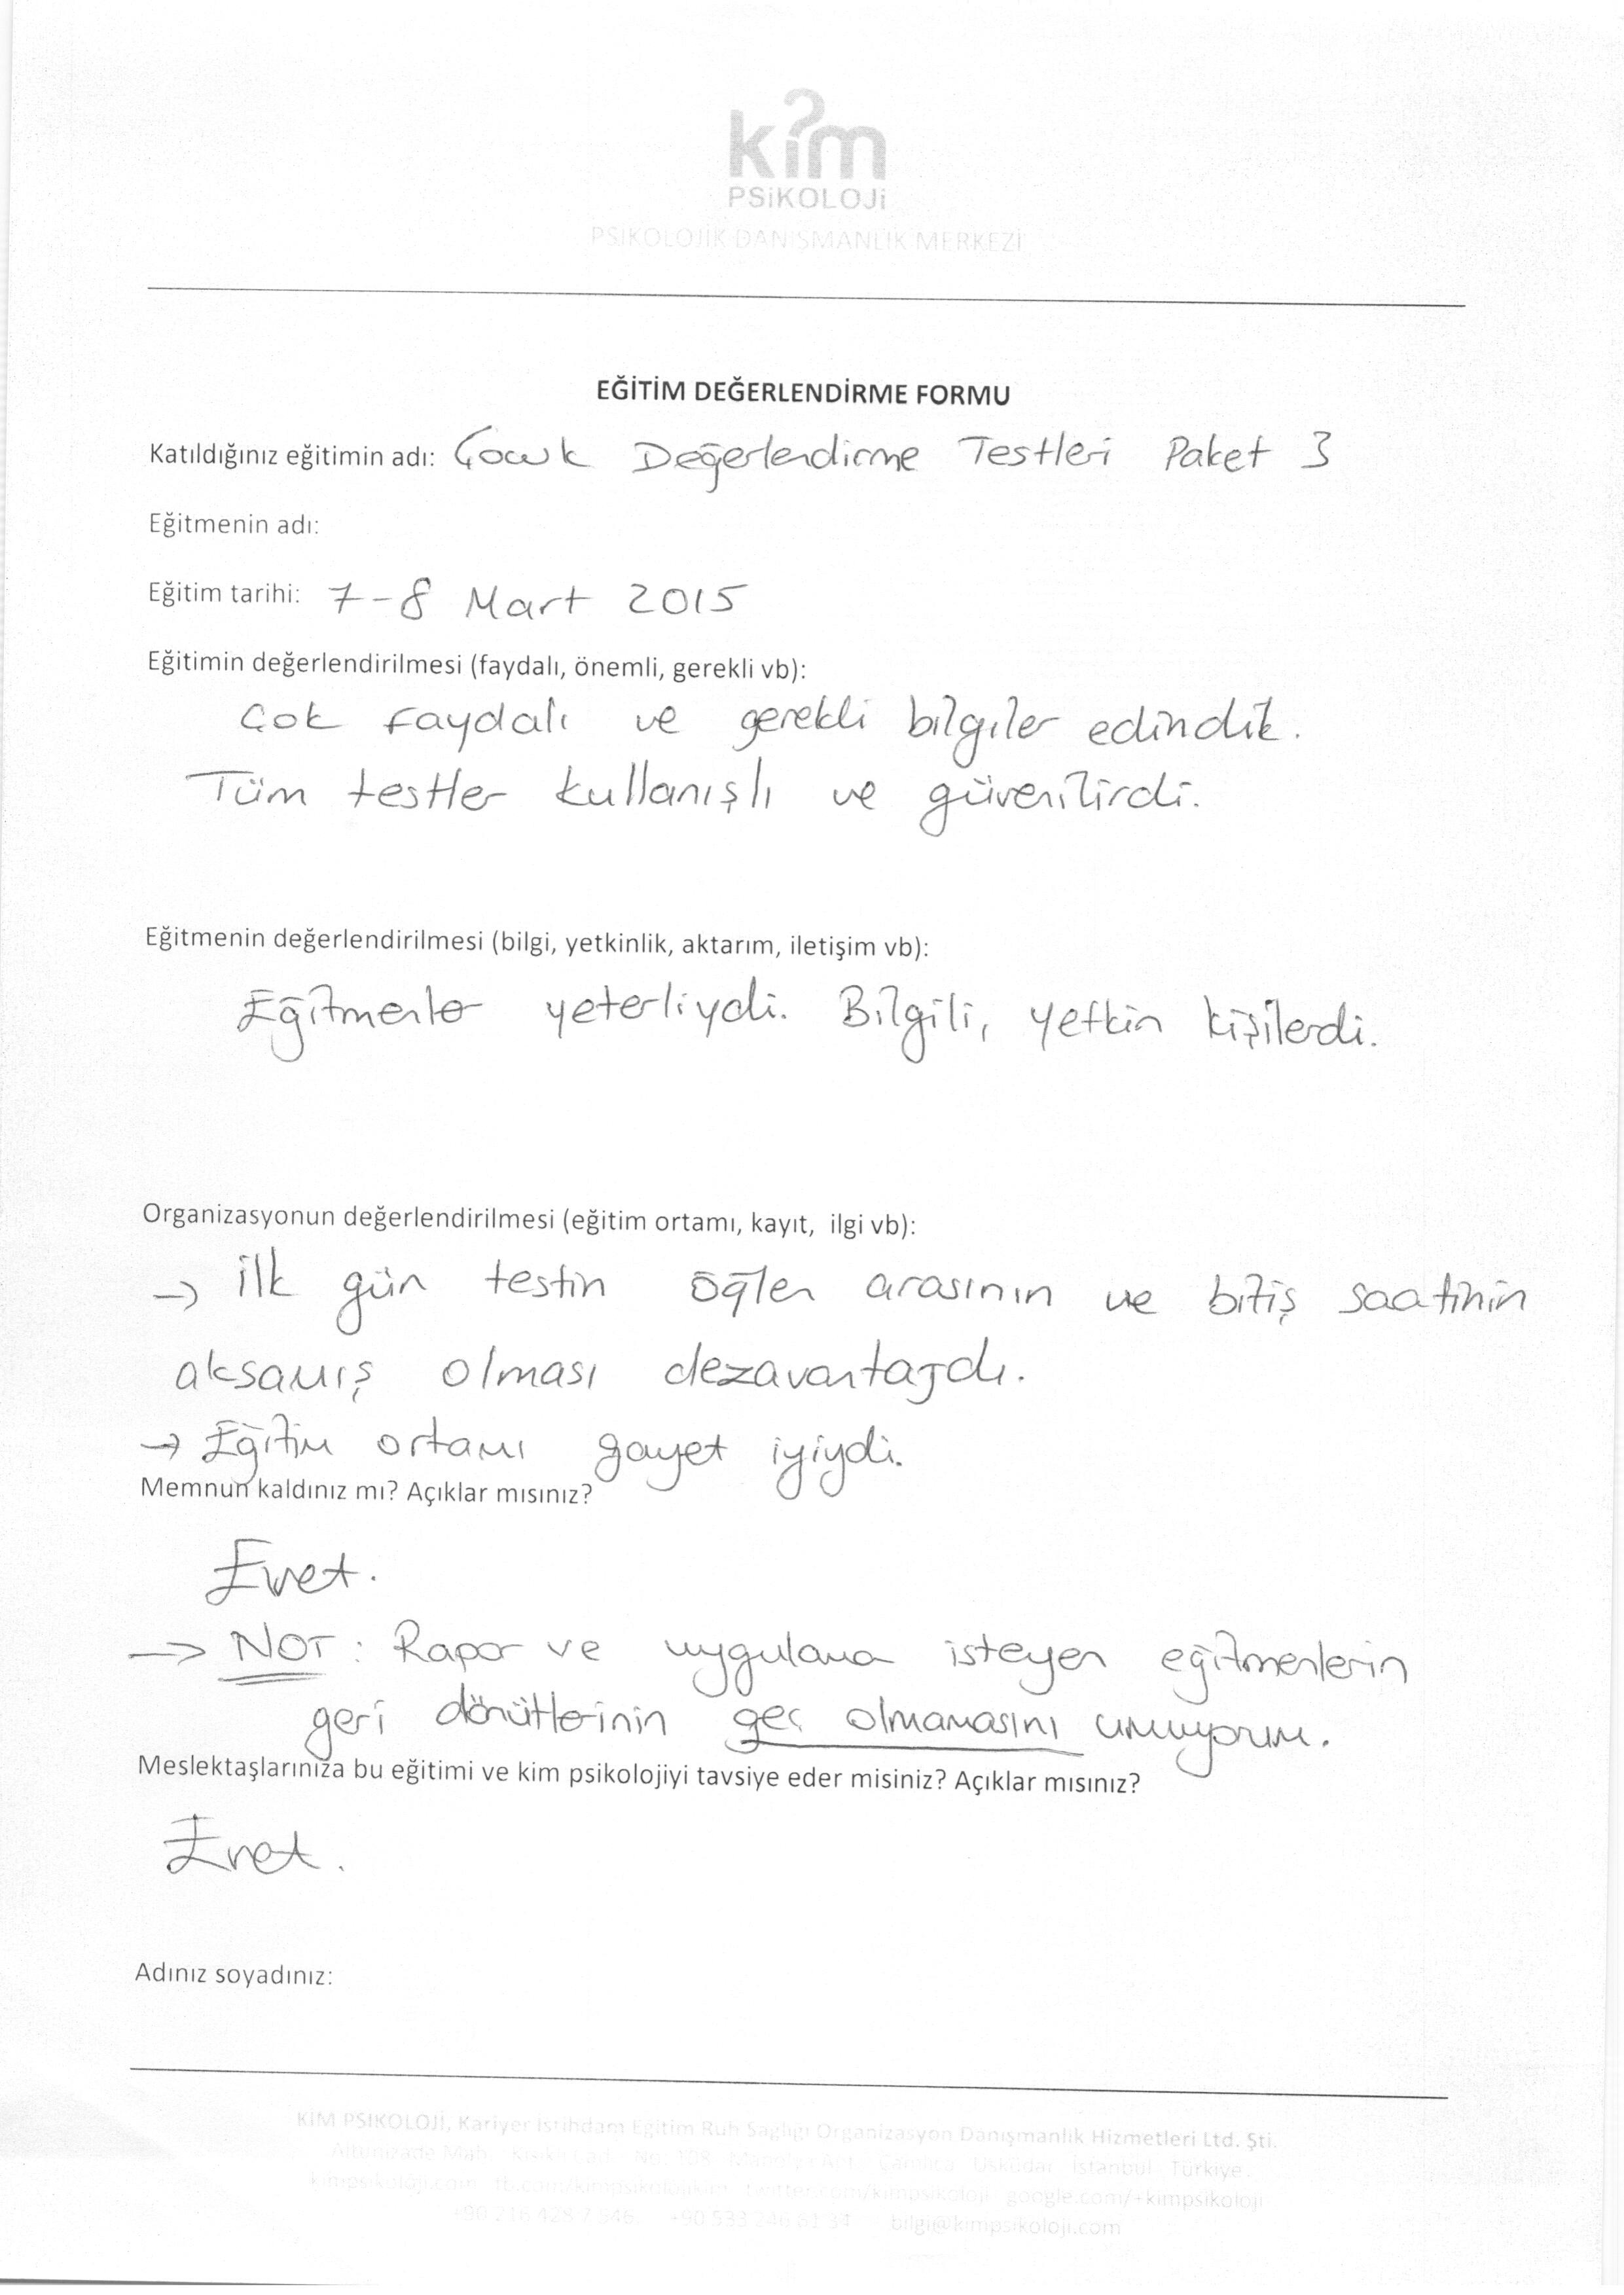 kim
PSiKOLOJi
PSİKOLOJİK DANIŞMANLIK MERKEZİ
EĞİTİM DEĞERLENDİRME FORMU
Katıldığınız eğitimin adı: Çocuk Değerlendirme Testleri Paket 3
Eğitmenin adı:
Eğitim tarihi: 7-8 Mart 2015
Eğitimin değerlendirilmesi (faydalı, önemli, gerekli vb):
Çok faydalı ve gerekli bilgiler edindik.
Tüm testler kullanışlı ve güvenilirdi.
Eğitmenin değerlendirilmesi (bilgi, yetkinlik, aktarım, iletişim vb):
Eğitmenler yeterliydi. Bilgili, yetkin kişilerdi.
Organizasyonun değerlendirilmesi (eğitim ortamı, kayıt, ilgi vb):
→ İlk gün testin öğlen arasının ve bitiş saatinin
aksamış olması dezavantajdı.
→ Eğitim ortamı gayet iyiydi.
Memnun kaldınız mı? Açıklar mısınız?
Evet.
→ NOT: Rapor ve uygulama isteyen eğitmenlerin
geri dönütlerinin geç olmamasını umuyorum.
Meslektaşlarınıza bu eğitimi ve kim psikolojiyi tavsiye eder misiniz? Açıklar mısınız?
Evet.
Adınız soyadınız:
KİM PSİKOLOJİ, Kariyer İstihdam Eğitim Ruh Sağlığı Organizasyon Danışmanlık Hizmetleri Ltd. Şti.
Altunizade Mah. Kısıklı Cad. No. 108 Çamlıca Üsküdar İstanbul Türkiye
kimpsikoloji.com twitter.com/kimpsikoloji google.com/+kimpsikoloji
bilgi@kimpsikoloji.com